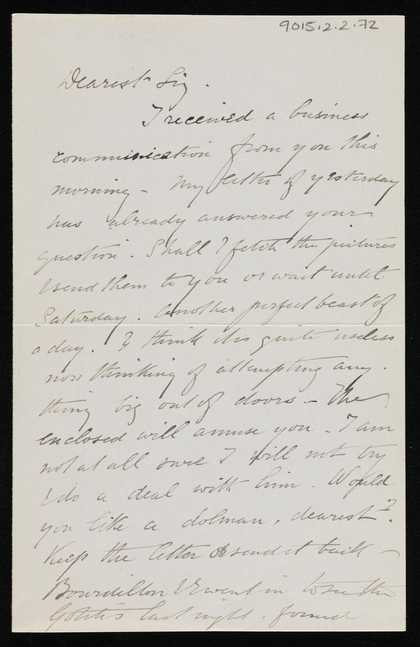 9015.2.2.72
Dearest Liz.
I received a business
communication from you this
morning - My letter of yesterday
has already answered your
question. Shall I fetch the pictures
& send them to you or wait until
Saturday. Another perfect beast of
a day. I think it is quite useless
now thinking of attempting any-
thing big out of doors - The
enclosed will amuse you - I am
not at all sure I will not try
& do a deal with him. Would
you like a dolman, dearest?
Keep the letter & send it back -
Bourdillon & I went in to see the
last night. found